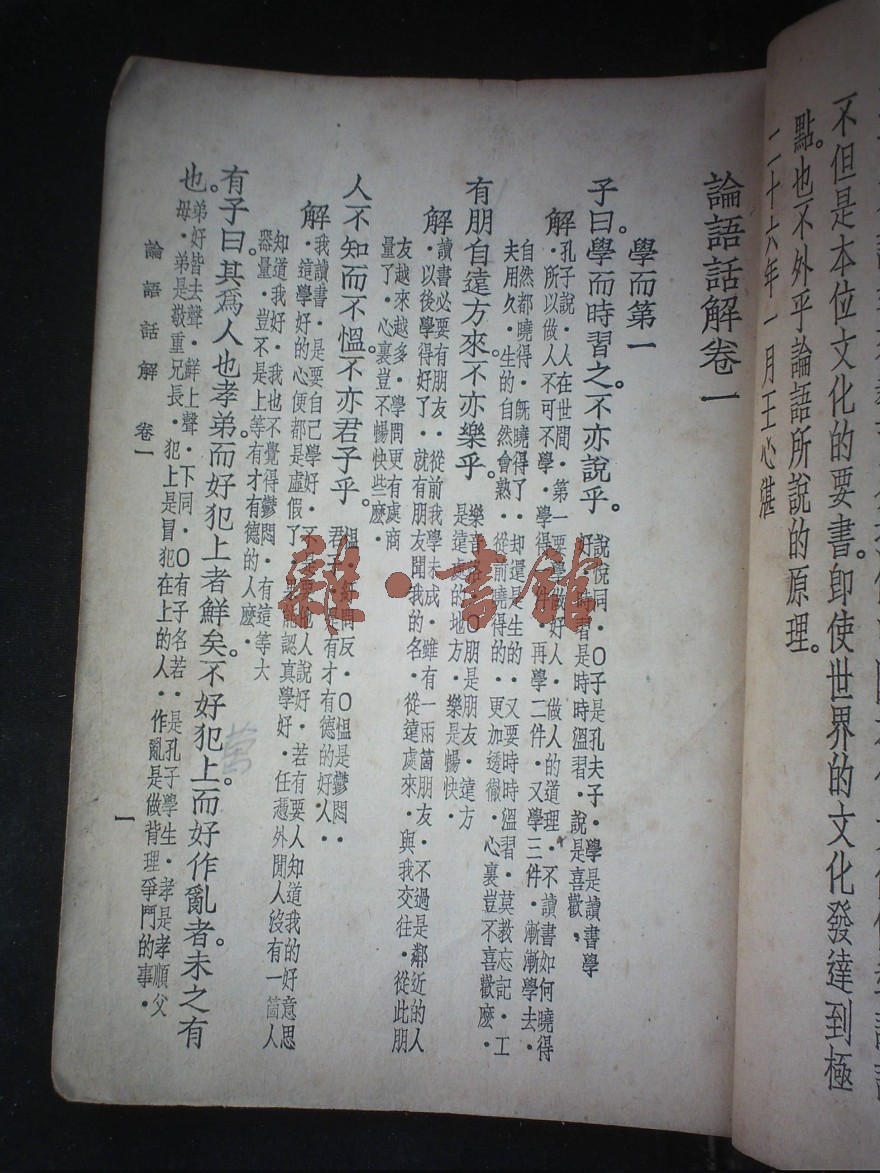 不但是本位文化的要書。即使世界的文化發達到極
點。也不外乎論語所說的原理。
二十六年一月王心湛
論語話解卷一
學而第一
子曰。學而時習之。不亦說乎。
說悅同．○子是孔夫子．學是讀書學
時時溫習．說是喜歡．
解
孔子說．人在世間．第一要學做好人．做人的道理．不讀書如何曉得
．所以做人不可不學．學得一件．再學二件．又學三件．漸漸學去．
自然都曉得．旣曉得了．却還是生的．又要時時溫習．莫教忘記．工
夫用久．生的自然會熟．從前曉得的．更加透徹．心裏豈不喜歡麽．
有朋自遠方來。不亦樂乎。
樂音洛．○朋是朋友．遠方
是遠處的地方．樂是暢快．
解
讀書必要有朋友．從前我學未成．雖有一兩箇朋友．不過是鄰近的人
．以後學得好了．就有朋友聞我的名．從遠處來．與我交往．從此朋
友越來越多．學問更有處商
量了．心裏豈不暢快些麽．
人不知而不慍。不亦君子乎。
反．○慍是鬱悶．
君子是有才有德的好人．
解
我讀書．是要自己學好．不是要他人說好．若有要人知道我的好意思
．這學好的心便都是虛假了．認真學好．任憑外閒人沒有一箇人
知道我好．我也不覺得鬱悶．有這等大
器量．豈不是上等有才有德的人麽．
有子曰。其爲人也孝弟。而好犯上者鮮矣。不好犯上。而好作亂者。未之有
也。
弟好皆去聲．鮮上聲．下同．○有子名若．是孔子學生．孝是孝順父
母．弟是敬重兄長．犯上是冒犯在上的人．作亂是做背理爭鬥的事．
論語話解 卷一
一
雜·書館